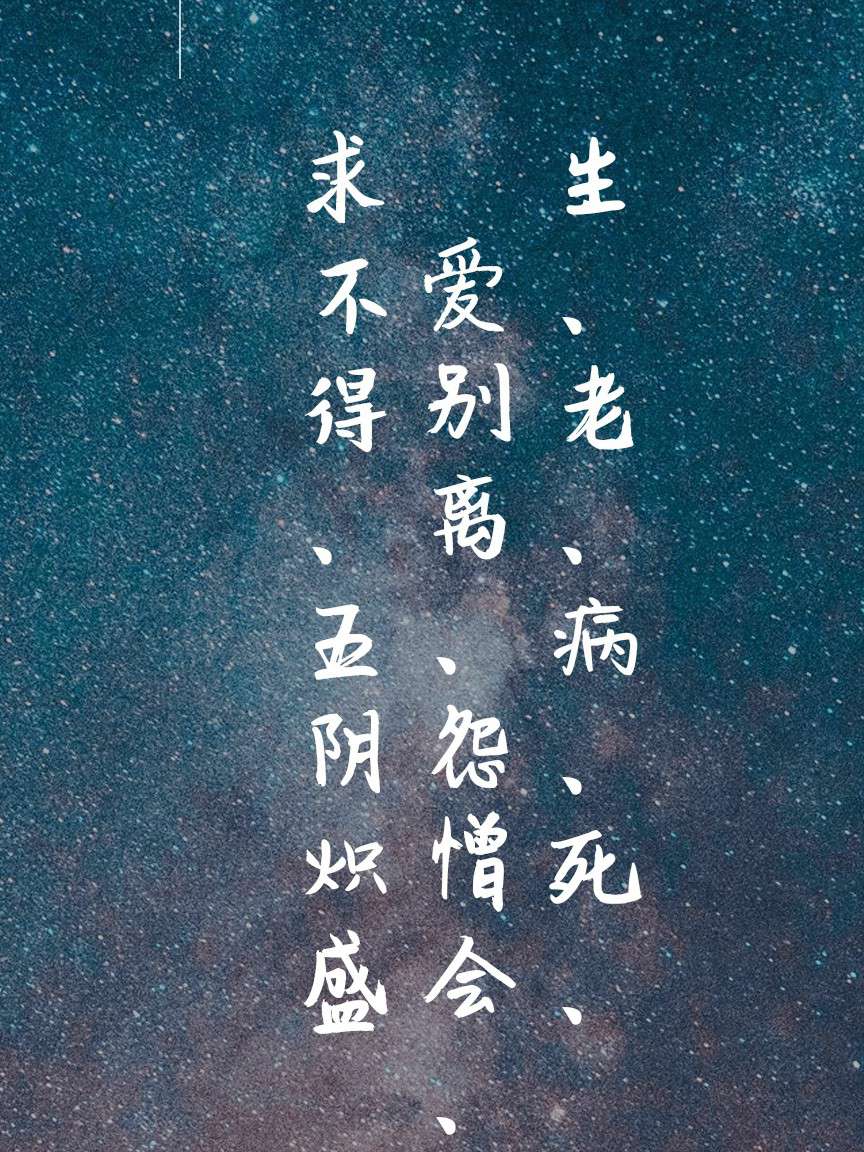 生、老、病、死、
爱别离、怨憎会、
求不得、五阴炽盛